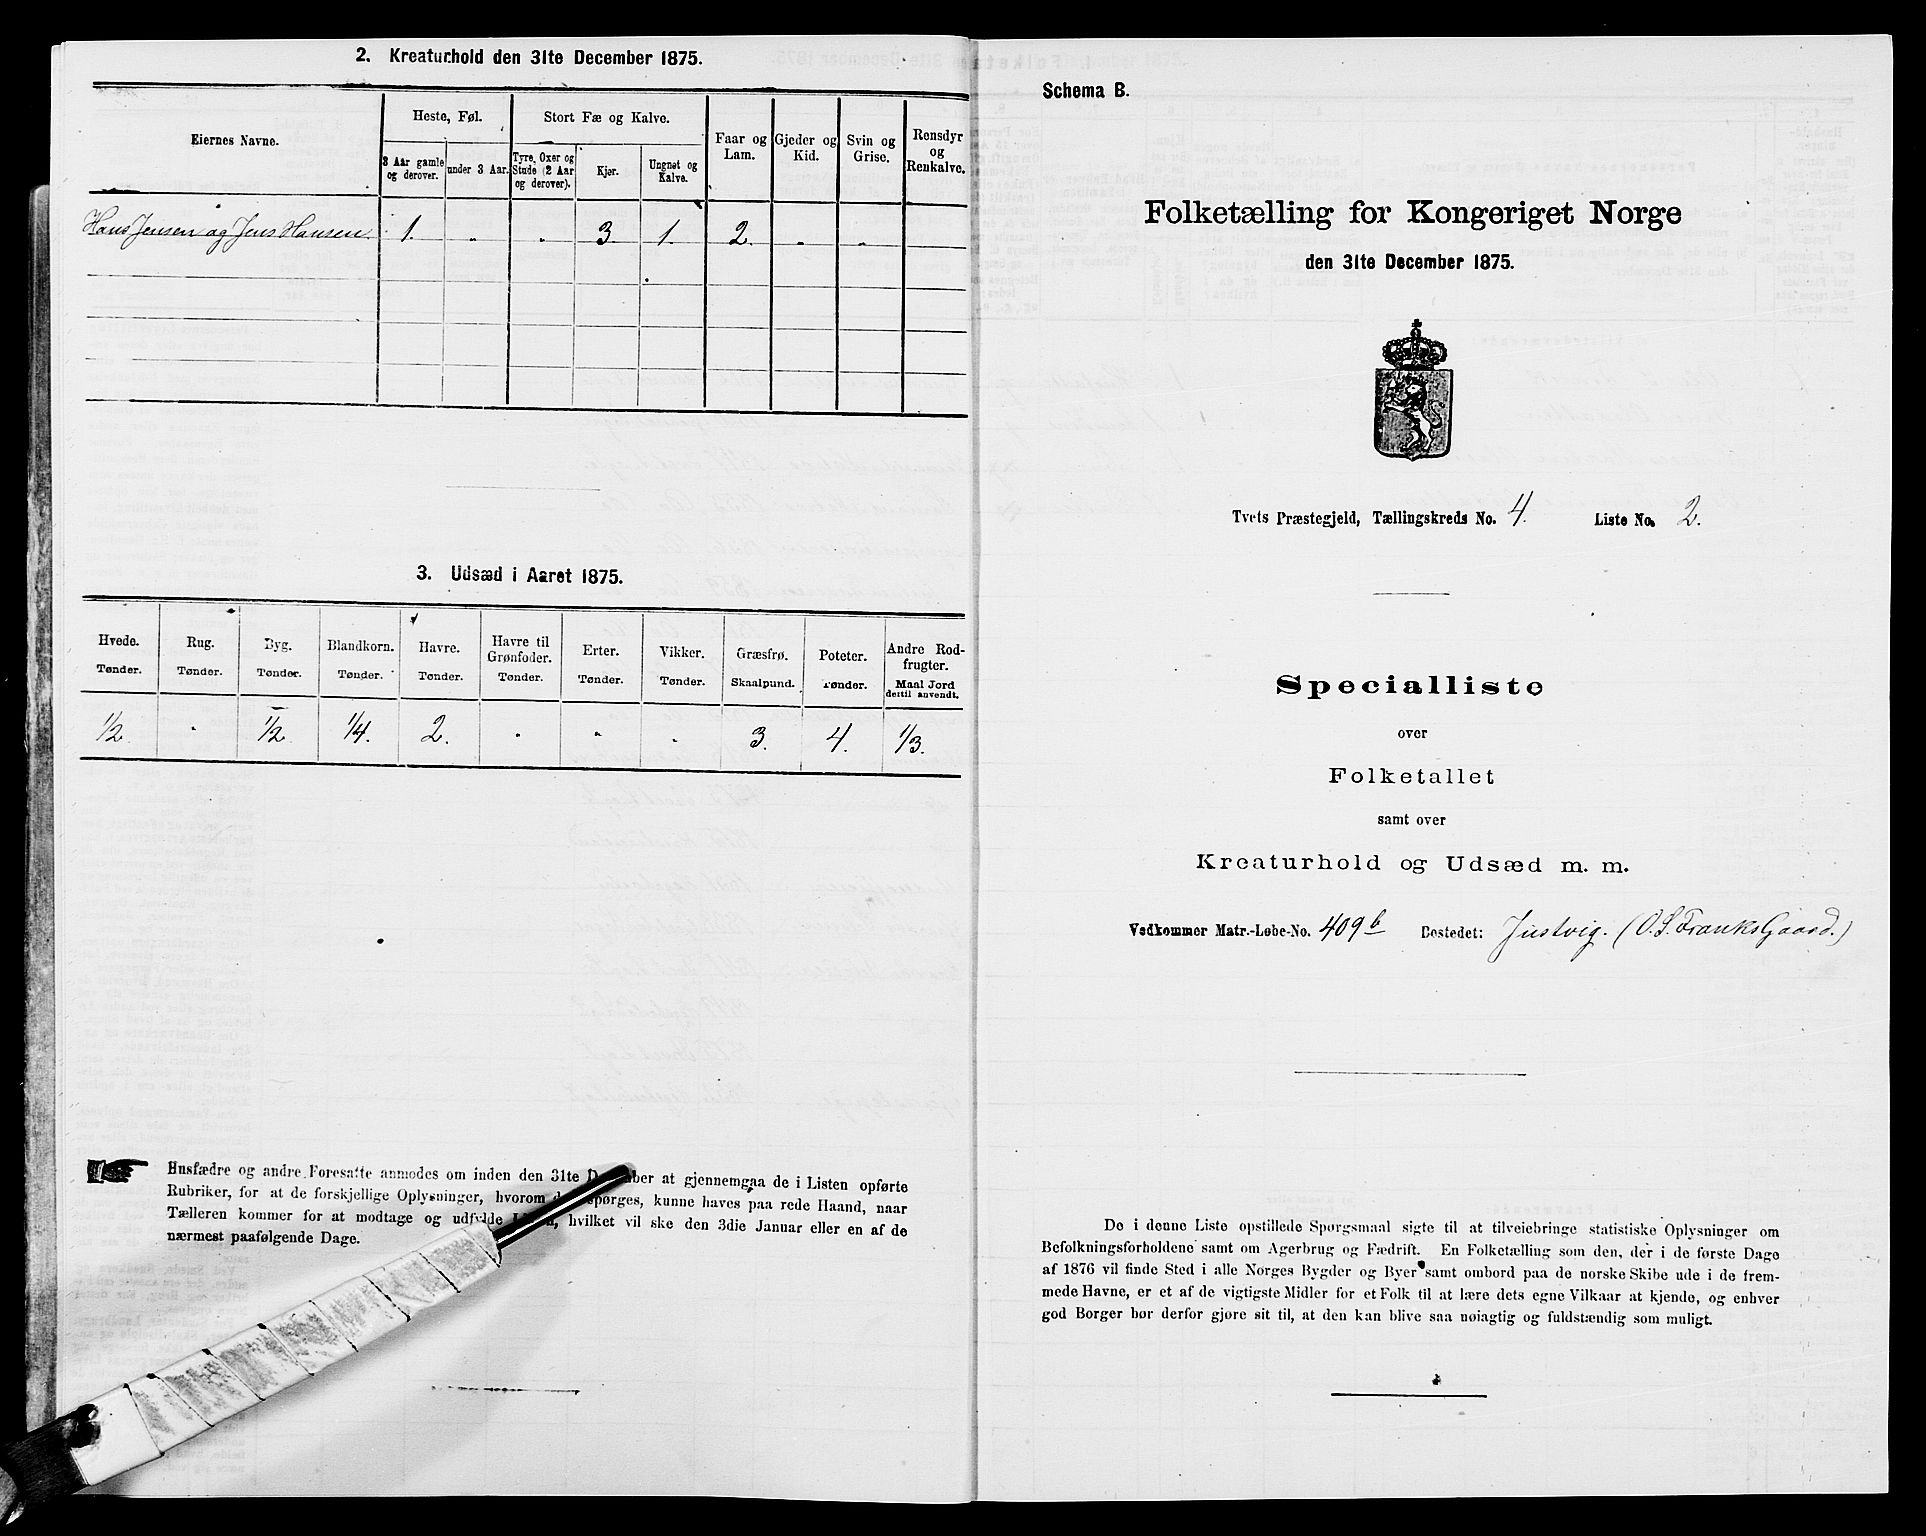 2. Kreaturhold den 31te December 1875.
Eiernes Navne.
Heste, Føl.
Stort Fæ og Kalve.
Faar og Lam.
Gjeder og Kid.
Svin og Grise.
Rensdyr og Renkalve.
3 Aar gamle og derover.
under 3 Aar.
Tyre, Oxer og Stude (2 Aar og derover).
Kjør.
Ungnøt og Kalve.
Hans Jensen og Jens Hansen. 1. " " 3. 1. 2. " "
3. Udsæd i Aaret 1875.
Hvede. Rug. Byg. Blandkorn. Havre. Havre til Grønfoder. Erter. Vikker. Græsfrø. Poteter. Andre Rodfrugter.
Tønder. Tønder. Tønder. Tønder. Tønder. Tønder. Tønder. Tønder. Skaalpund. Tønder. Maal Jord dertil anvendt.
1/2 " 1/2 1/4. 2. " " " 3. 4. 1/3.
Husfædre og andre Foresatte anmodes om inden den 31te at gjennemgaa de i Listen opførte
Rubriker, for at de forskjellige Oplysninger, hvorom kunne haves paa rede Haand, naar
Tælleren kommer for at modtage og udfylde hvilket vil ske den 3die Januar eller en af de
nærmest paafølgende Dage.
Schema B.
Folketælling for Kongeriget Norge
den 31te December 1875.
Tvets Præstegjeld, Tællingskreds No. 4. Liste No. 2.
Specialliste
over
Folketallet
samt over
Kreaturhold og Udsæd m. m.
Vedkommer Matr.-Løbe-No. 409b Bostedet: Justvig. (O. S. Franks Gaard.)
De i denne Liste opstillede Spørgsmaal sigte til at tilveiebringe statistiske Oplysninger om
Befolkningsforholdene samt om Agerbrug og Fædrift. En Folketælling som den, der i de første Dage
af 1876 vil finde Sted i alle Norges Bygder og Byer samt ombord paa de norske Skibe ude i de frem-
mede Havne, er et af de vigtigste Midler for et Folk til at lære dets egne Vilkaar at kjende, og enhver
god Borger bør derfor gjøre sit til, at den kan blive saa nøiagtig og fuldstændig som muligt.